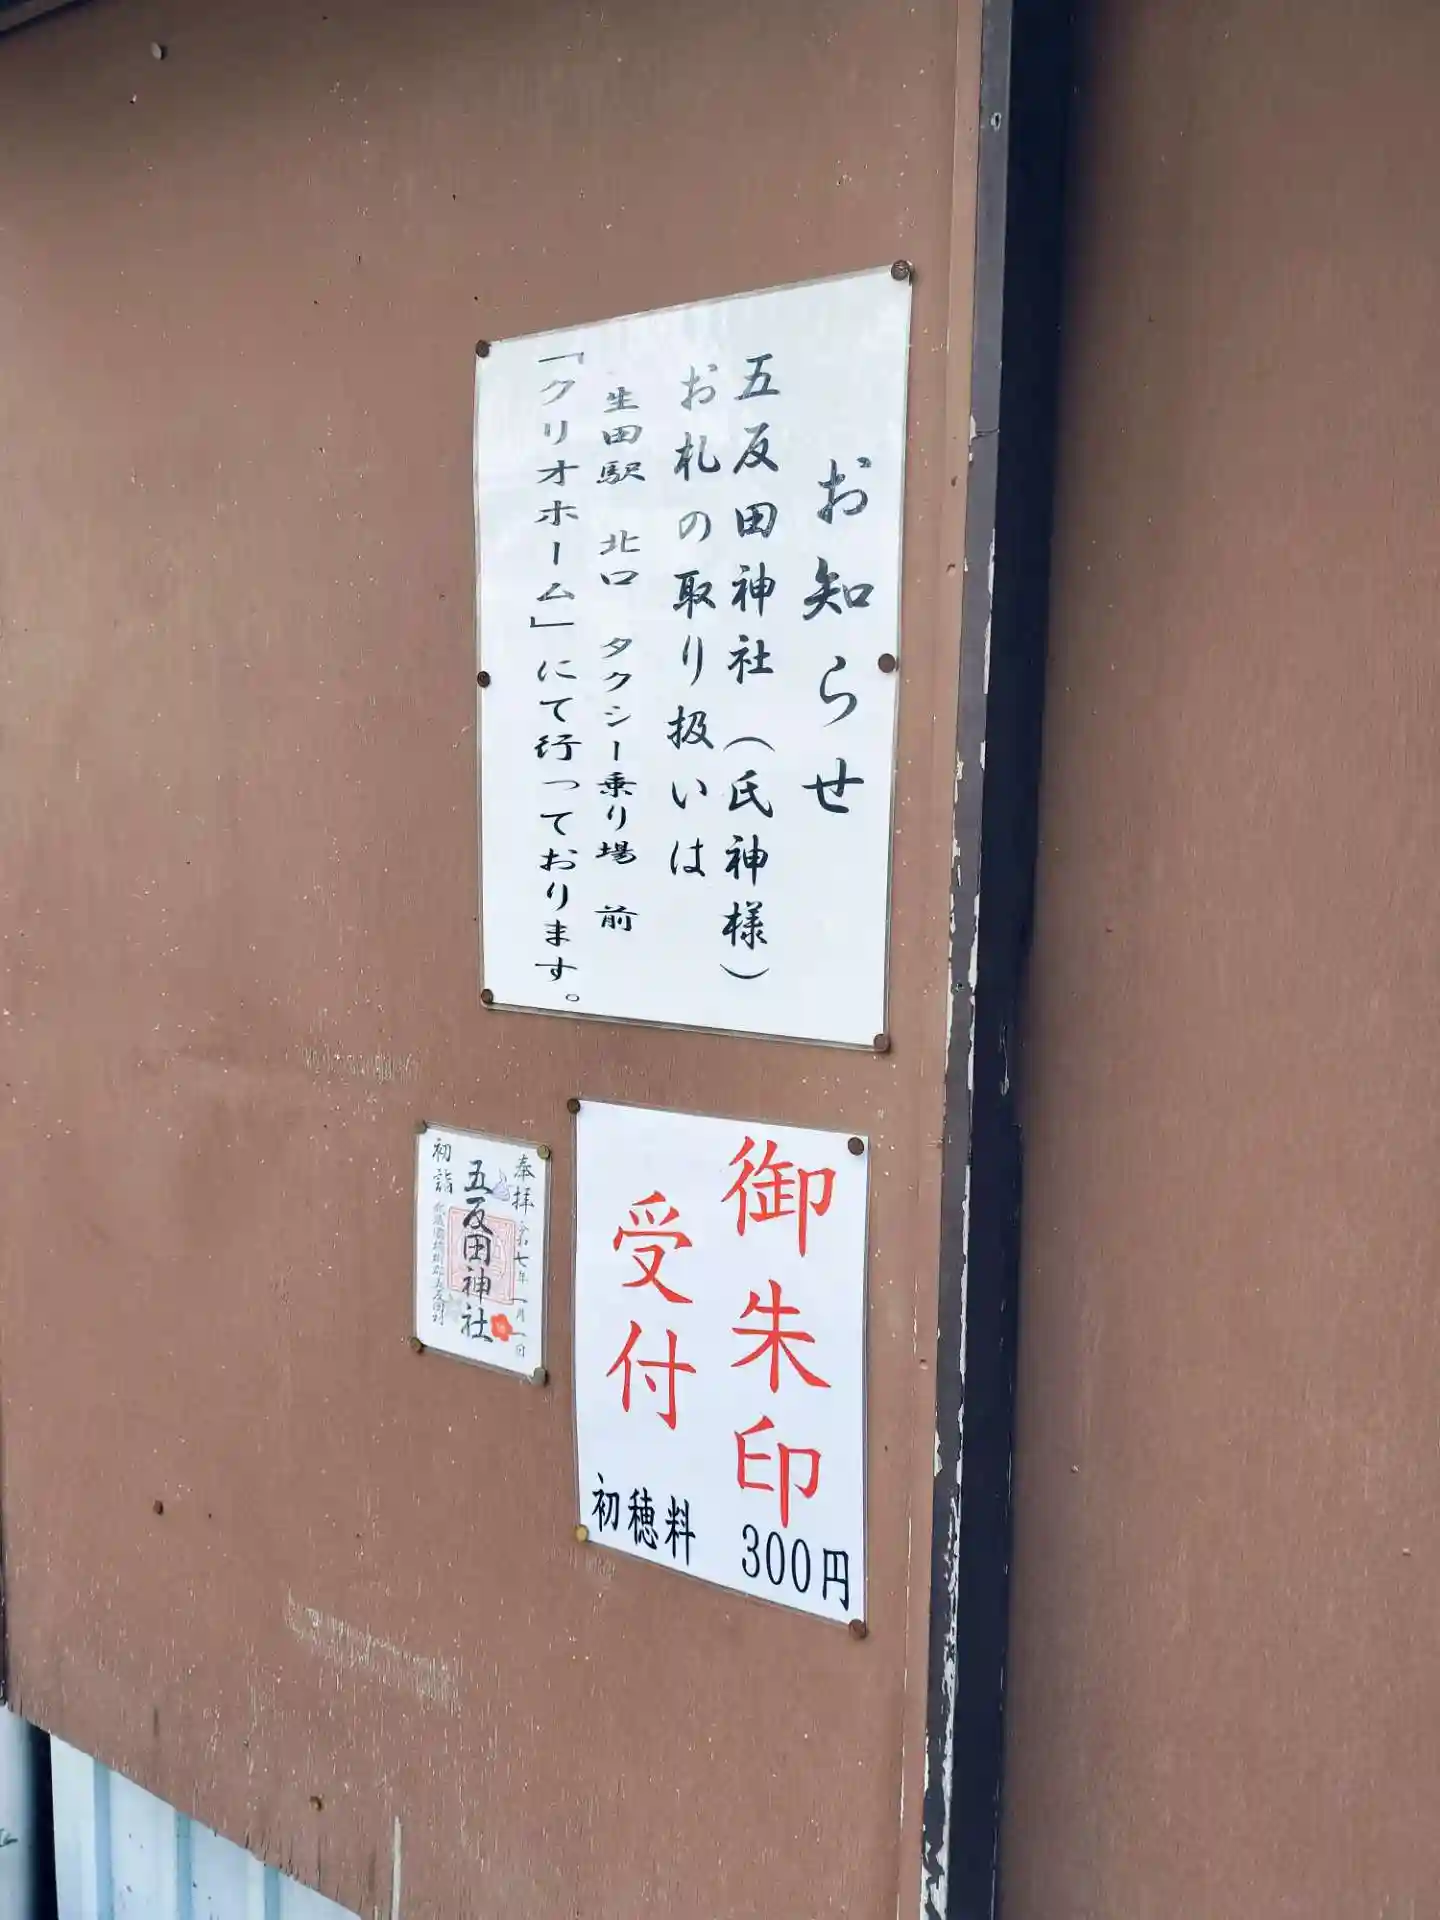 お知らせ
五反田神社（氏神様）
お札の取り扱いは
生田駅 北口 タクシー乗り場 前
「クリオホーム」にて行っております。
御朱印
受付
初穂料 300円
奉拝 令和七年一月一日
五反田神社
初詣